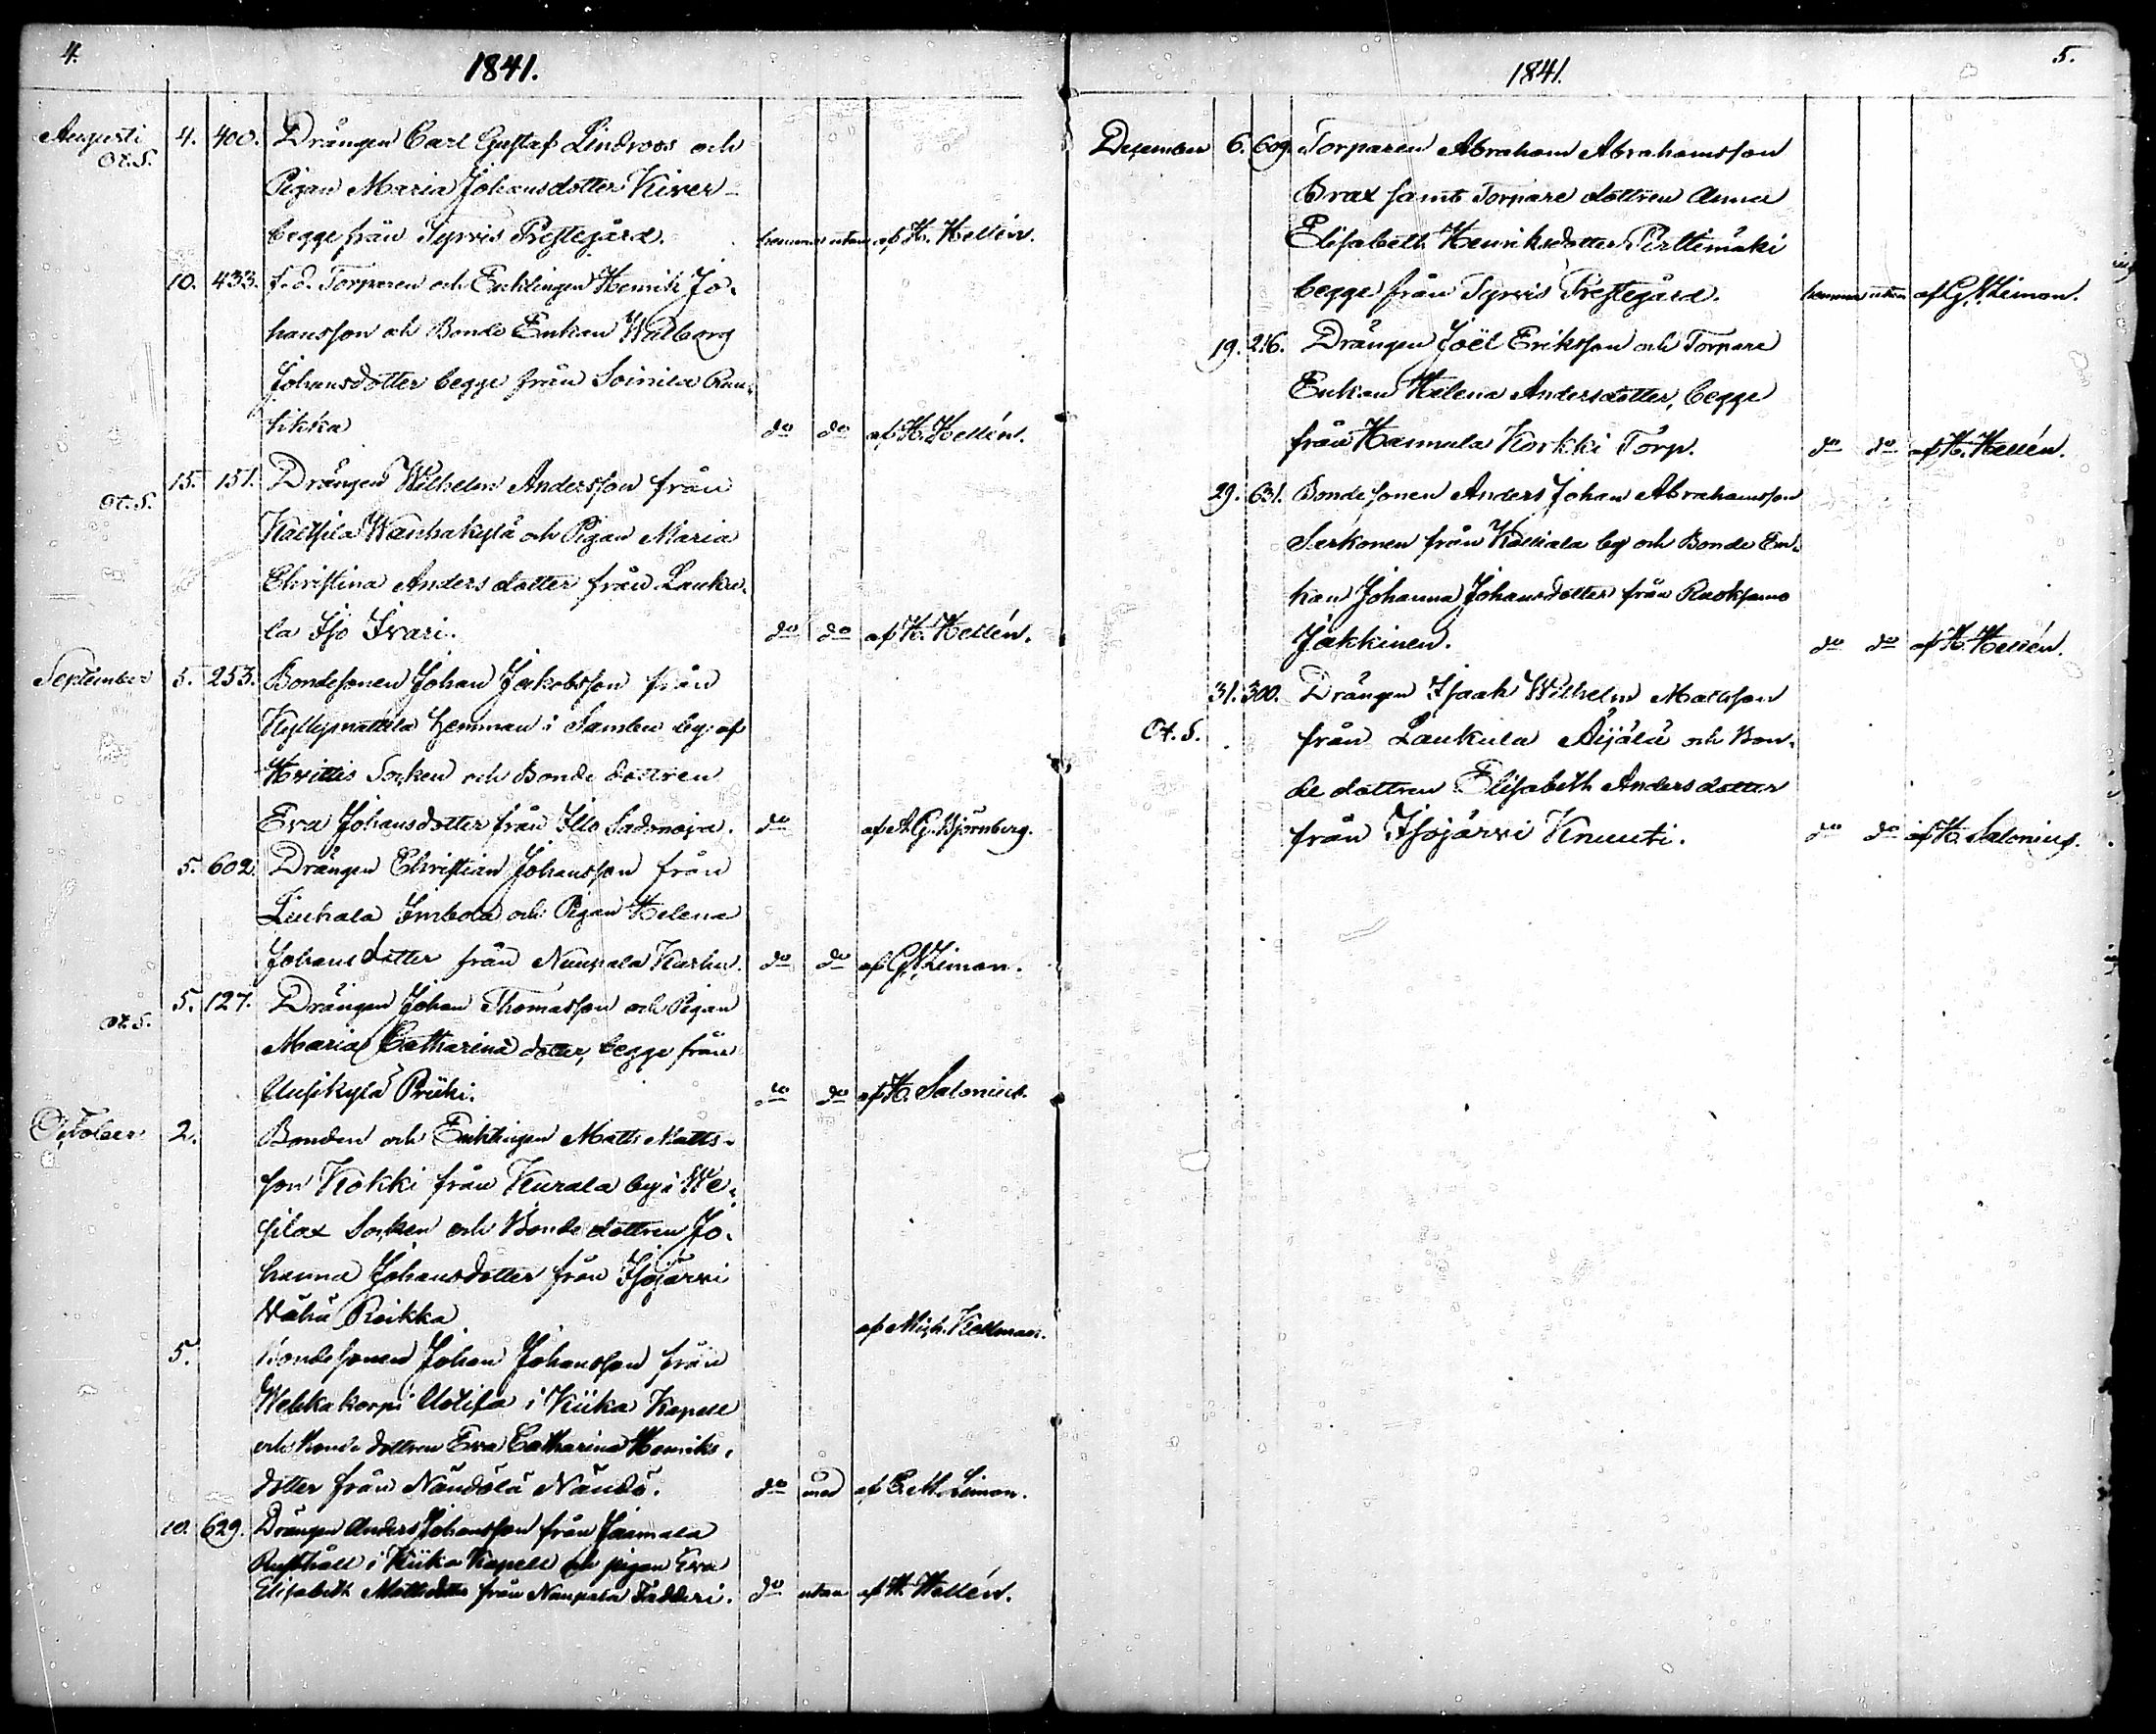 4.
1841.
Augusti 4. 400. Drängen Carl Gustaf Lindroos och
Ot.S. Pigan Maria Johansdotter Kiver
begge från Tyrvis Prestegård. hemma utan af H. Hellén.
10. 433. f.d. Torparen och Enklingen Henrik Jo-
hansson och Bonde Enkan Walborg
Johansdotter begge från Soinila
do do af H. Hellén.
15. 151. Drängen Wilhelm Andersson från
Ot.S. Kaltsila Wanhakylä och Pigan Maria
Christina Anders dotter från Lauku-
la Iso Ivari. do do af H. Hellén.
September 5. 253. Bondesonen Johan Jakobsson från
hemman i Sambu by af
Hvittis Socken och Bonde dottren
Eva Johansdotter från Illo Sadonoja. do af A.G. Björnberg.
5. 602. Drängen Christian Johansson från
Liuhala Imbola och Pigan Helena
Johansdotter från Nuupala Karhu. do do af G.N. Liman.
5. 127. Drängen Johan Thomasson och Pigan
Ot.S. Maria Catharina dotter, begge från
Uusikylä Priiki. do do af H. Salonius.
October 2. Bonden och Enklingen Matts Matts-
son Kokki från Kurala by i We-
silax Socken och Bonde dottren Jo-
hanna Johansdotter från Isojärvi
Nähä Roikka af Mich. Kellman.
5. Bondesonen Johan Johansson från
Wehkakorpi Uotila i Kiika Kapell
och Bonde dottren Eva Catharina Henriks-
dotter från Nändölä Nändö. do med af G.N. Liman.
10. 629. Drängen Anders Johansson från Jaamala
Rusthåll i Kiika Kapell och pigan Eva
Elisabeth Mattsdotter från Nuupala Fadderi. do utan af H. Hellén.
5.
1841.
December 6. 609. Torparen Abraham Abrahamsson
Brax samt Torpare dottren Anna
Elisabeth Henriksdotter Pirttimäki
begge från Tyrvis Prestegård. hemma utan af G.N. Liman.
19. 216. Drängen Joël Eriksson och Torpare
Enkan Helena Andersdotter, begge
från Hannula Korkki Torp. do do af H. Hellén.
29. 631. Bondesonen Anders Johan Abrahamsson
Serkonen från Kalliala by och Bonde En-
kan Johanna Johansdotter från Ruoksamo
Jakkinen. do do af H. Hellén.
31. 300. Drängen Isaak Wilhelm Mattsson
Ot.S. från Laukula Äijälä och Bon-
de dottren Elisabeth Anders dotter
från Isojärvi Knuuti. do do af H. Salonius.